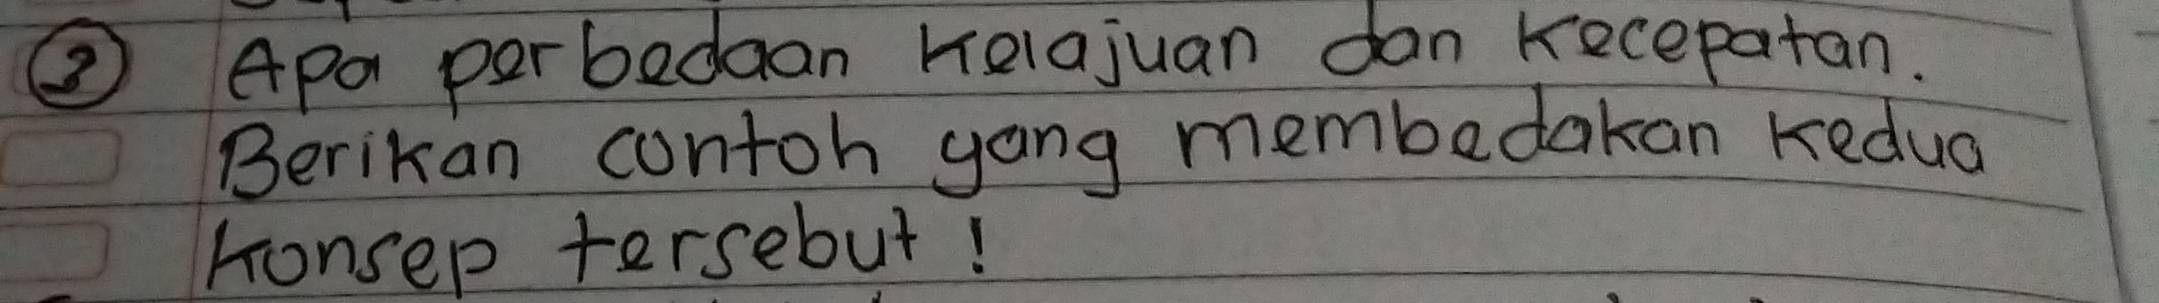 ③ Apa perbedaan Kelajuan dan Kecepatan.
Berikan contoh yang membedakan Kedua
Konsep tersebut!